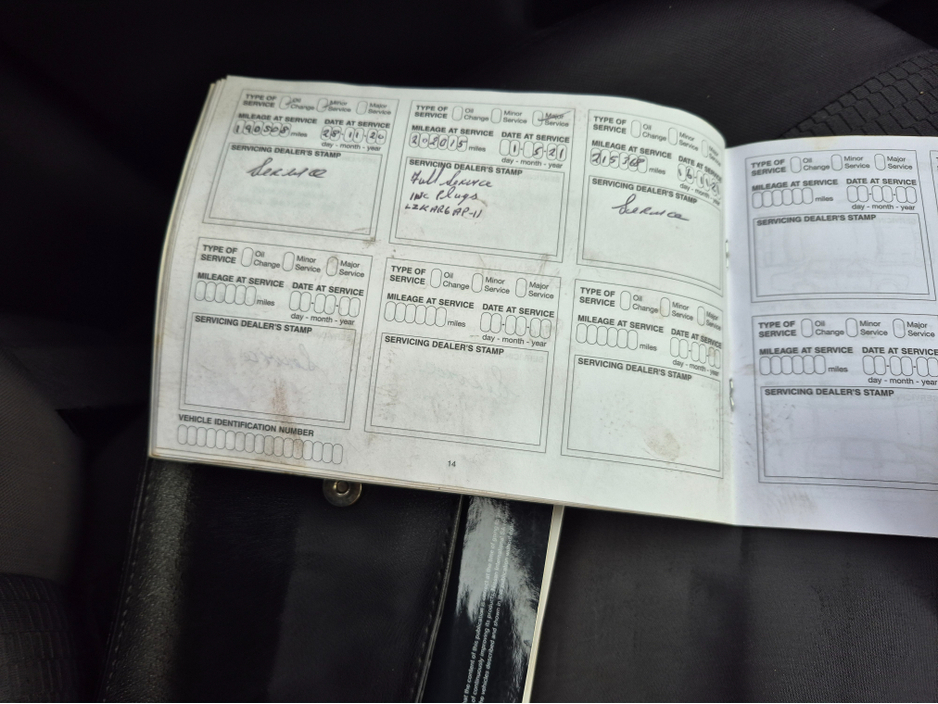 TYPE OF SERVICE Oil Change Minor Service Major Service
MILEAGE AT SERVICE DATE AT SERVICE
190508 miles 28-11-20
day - month - year
SERVICING DEALER'S STAMP
Service
TYPE OF SERVICE Oil Change Minor Service Major Service
MILEAGE AT SERVICE DATE AT SERVICE
202015 miles 1-5-21
day - month - year
SERVICING DEALER'S STAMP
Full Service
INC Plugs
LZKAR6AP-11
TYPE OF SERVICE Oil Change Minor Service
MILEAGE AT SERVICE DATE AT SERVICE
215768 miles
day - month - year
SERVICING DEALER'S STAMP
Service
TYPE OF SERVICE Oil Change Minor Service Major Service
MILEAGE AT SERVICE DATE AT SERVICE
miles
day - month - year
SERVICING DEALER'S STAMP
TYPE OF SERVICE Oil Change Minor Service Major Service
MILEAGE AT SERVICE DATE AT SERVICE
miles
day - month - year
SERVICING DEALER'S STAMP
TYPE OF SERVICE Oil Change Minor Service Major Service
MILEAGE AT SERVICE DATE AT SERVICE
miles
day - month - year
SERVICING DEALER'S STAMP
VEHICLE IDENTIFICATION NUMBER
14
TYPE OF SERVICE Oil Change Minor Service Major Service
MILEAGE AT SERVICE DATE AT SERVICE
miles
day - month - year
SERVICING DEALER'S STAMP
TYPE OF SERVICE Oil Change Minor Service Major Service
MILEAGE AT SERVICE DATE AT SERVICE
miles
day - month - year
SERVICING DEALER'S STAMP
that the content of this publication
of continuously improving its products
the vehicles described and shown in